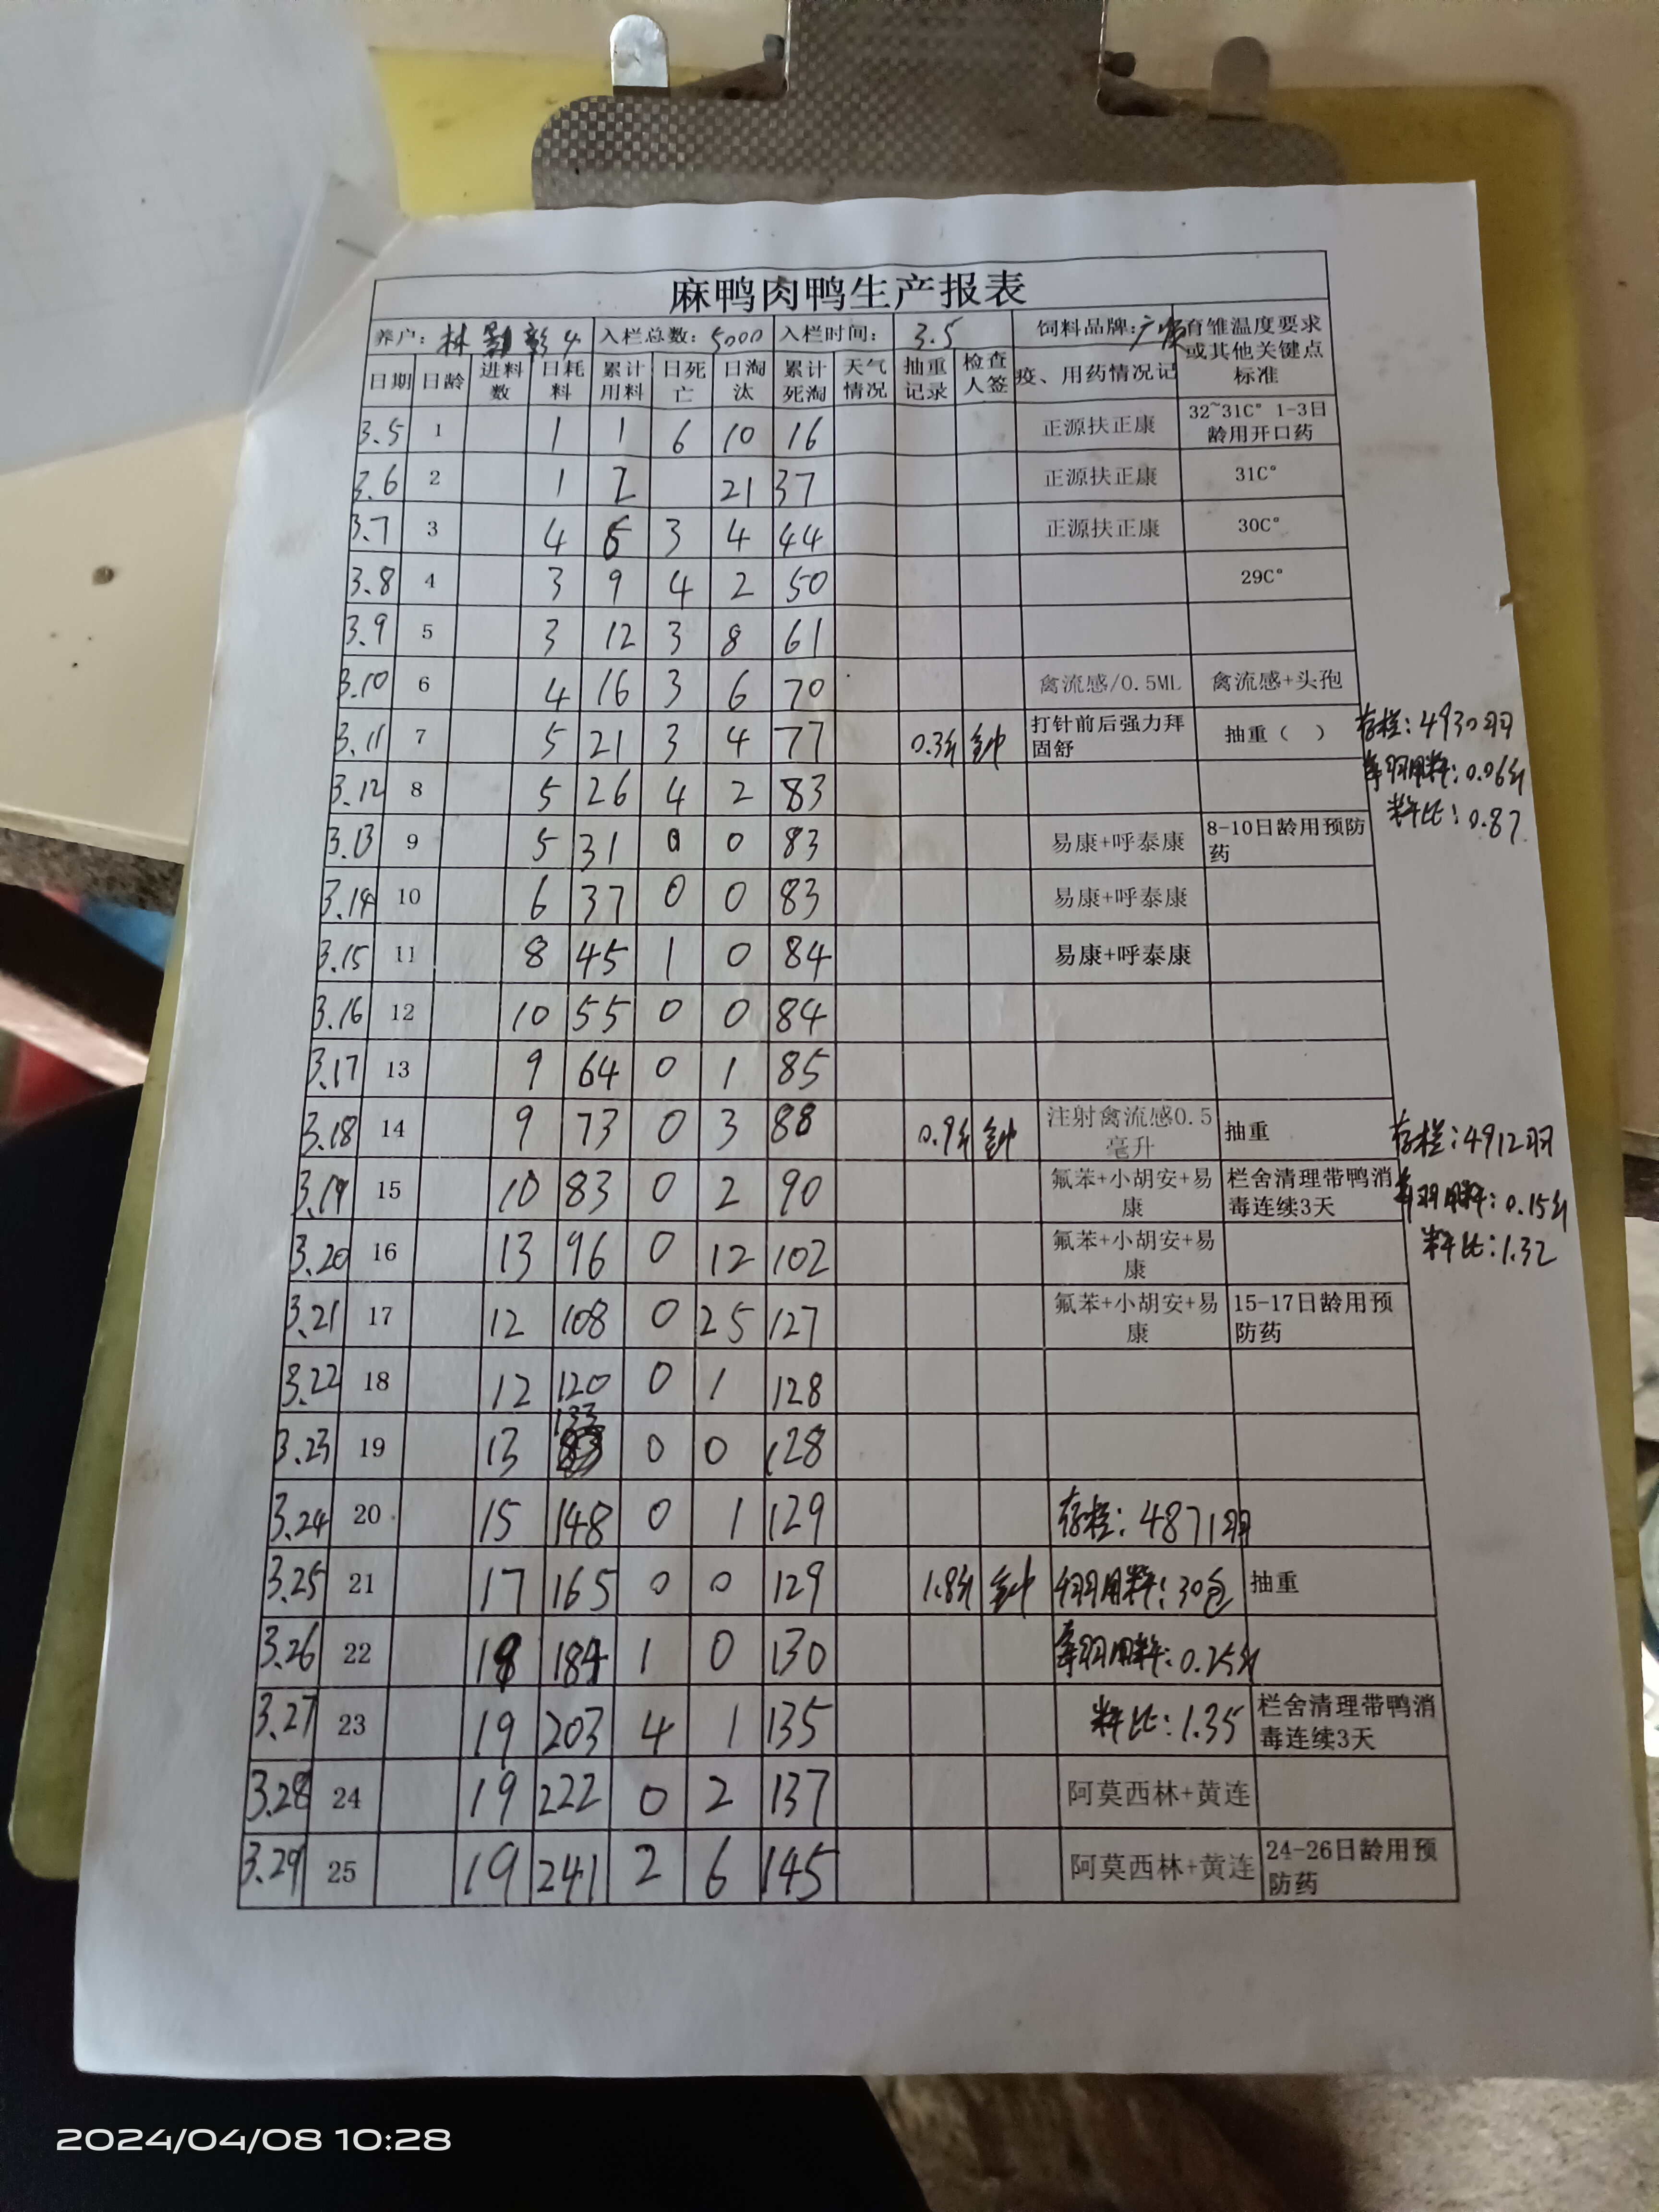 麻鸭肉鸭生产报表
养户: 林 彰 4 入栏总数: 5000 入栏时间: 3.5 饲料品牌: 广 育雏温度要求或其他关键点标准
日期 日龄 进料数 日耗料 累计用料 日死亡 日淘汰 累计死淘 天气情况 抽重记录 检查人签 疫、用药情况记
3.5 1 1 1 6 10 16 正源扶正康 32~31C° 1-3日龄用开口药
3.6 2 1 2 21 37 正源扶正康 31C°
3.7 3 4 6 3 4 44 正源扶正康 30C°
3.8 4 3 9 4 2 50 29C°
3.9 5 3 12 3 8 61
3.10 6 4 16 3 6 70 禽流感/0.5ML 禽流感+头孢
3.11 7 5 21 3 4 77 0.3斤 打针前后强力拜固舒 抽重（ ） 存栏: 4930羽
每羽用料: 0.06斤
料比: 0.87
3.12 8 5 26 4 2 83
3.13 9 5 31 0 0 83 易康+呼泰康 8-10日龄用预防药
3.14 10 6 37 0 0 83 易康+呼泰康
3.15 11 8 45 1 0 84 易康+呼泰康
3.16 12 10 55 0 0 84
3.17 13 9 64 0 1 85
3.18 14 9 73 0 3 88 0.9斤 注射禽流感0.5毫升 抽重 存栏: 4912羽
3.19 15 10 83 0 2 90 氟苯+小胡安+易康 栏舍清理带鸭消毒连续3天 每羽用料: 0.15斤
3.20 16 13 96 0 12 102 氟苯+小胡安+易康 料比: 1.32
3.21 17 12 108 0 25 127 氟苯+小胡安+易康 15-17日龄用预防药
3.22 18 12 120 0 1 128
3.23 19 13 133 0 0 128
3.24 20 15 148 0 1 129 存栏: 4871羽
3.25 21 17 165 0 0 129 1.8斤 羽用料: 30包 抽重
3.26 22 184 1 0 130 每羽用料: 0.25斤
3.27 23 19 203 4 1 135 料比: 1.35 栏舍清理带鸭消毒连续3天
3.28 24 19 222 0 2 137 阿莫西林+黄连
3.29 25 19 241 2 6 145 阿莫西林+黄连 24-26日龄用预防药
2024/04/08 10:28